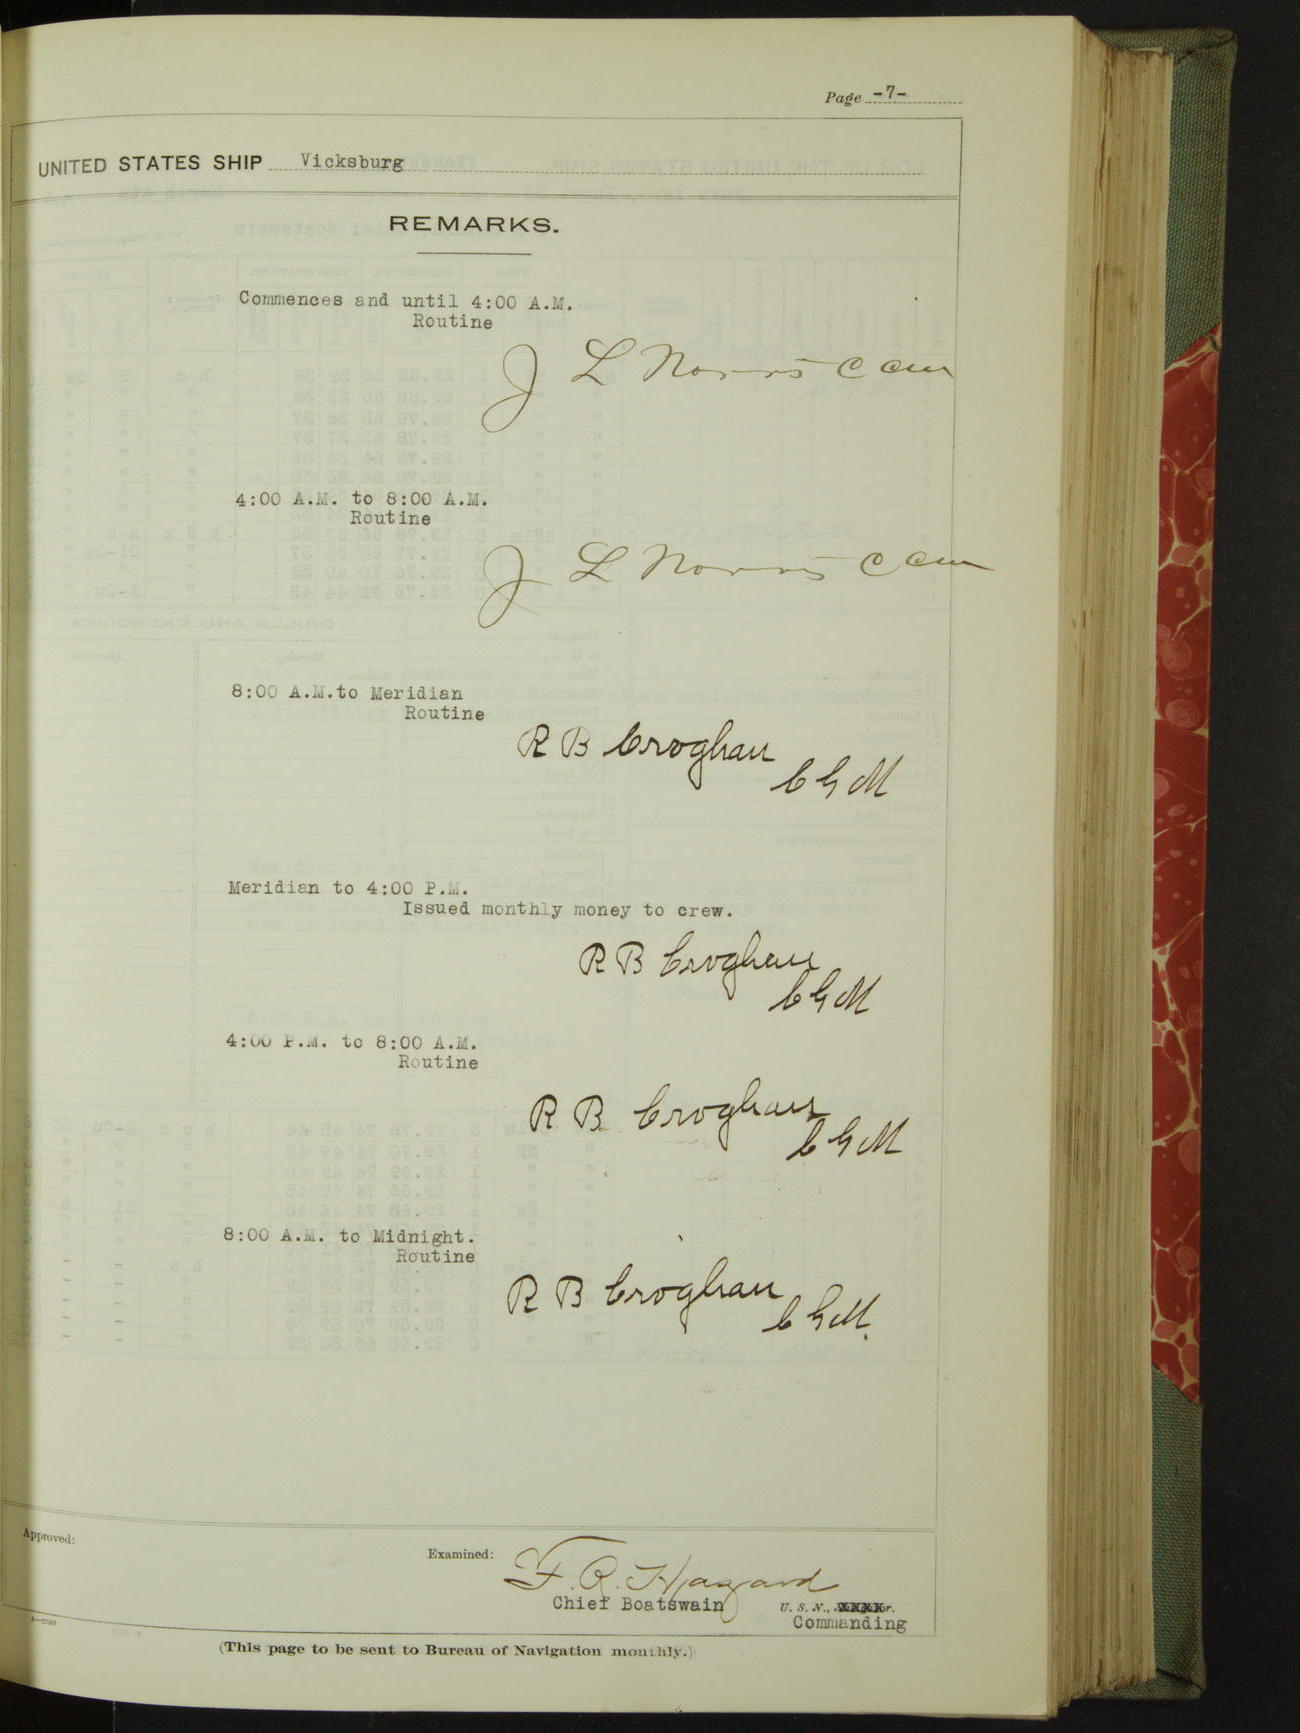 Page -7-
UNITED STATES SHIP Vicksburg
REMARKS.
Commences and until 4:00 A.M.
Routine
J L Norris C CM
4:00 A.M. to 8:00 A.M.
Routine
J L Norris C CM
8:00 A.M.to Meridian
Routine
R B Croghan
C G M
Meridian to 4:00 P.M.
Issued monthly money to crew.
R B Croghan
C G M
4:00 P.M. to 8:00 A.M.
Routine
R B Croghan
C G M
8:00 A.M. to Midnight.
Routine
R B Croghan
C G M.
Approved:
Examined:
F. R. Hazard
Chief Boatswain U. S. N.,
Commanding
(This page to be sent to Bureau of Navigation monthly.)